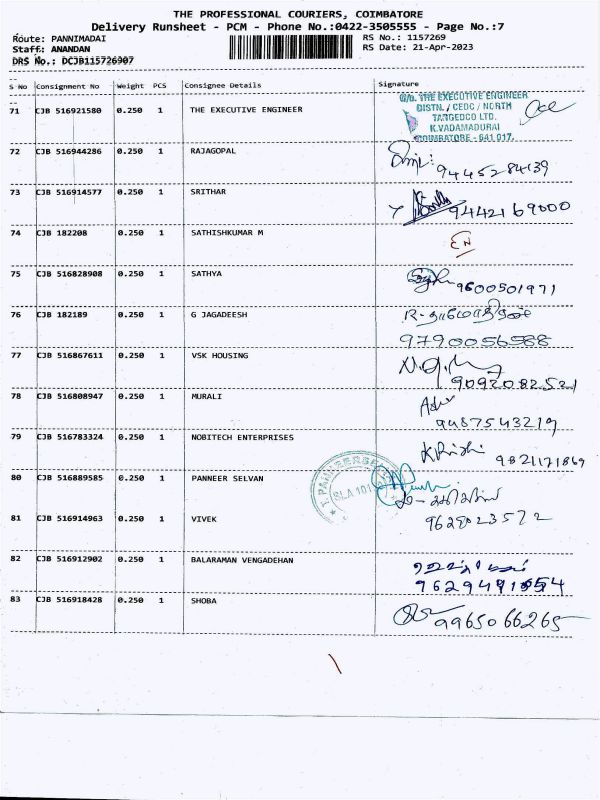 THE PROFESSIONAL COURIERS, COIMBATORE
Delivery Runsheet - PCM - Phone No.:0422-3505555 - Page No.:7
Route: PANNIMADAI
RS No.: 1157269
Staff: ANANDAN
RS Date: 21-Apr-2023
DRS No.: DCJB115726907
S No Consignment No Weight PCS Consignee Details Signature
71 CJB 516921580 0.250 1 THE EXECUTIVE ENGINEER
O/o. THE EXECUTIVE ENGINEER
DISTN. / CEDC / NORTH
TANGEDCO LTD.
K.VADAMADURAI
COIMBATORE - 641 017.
72 CJB 516944286 0.250 1 RAJAGOPAL
9445284139
73 CJB 516914577 0.250 1 SRITHAR
9442169000
74 CJB 182208 0.250 1 SATHISHKUMAR M
EN
75 CJB 516828908 0.250 1 SATHYA
9600501971
76 CJB 182189 0.250 1 G JAGADEESH
9790056588
77 CJB 516867611 0.250 1 VSK HOUSING
9092082521
78 CJB 516808947 0.250 1 MURALI
9487543219
79 CJB 516783324 0.250 1 NOBITECH ENTERPRISES
9821171869
80 CJB 516889585 1 0.250 PANNEER SELVAN
SLA 101
81 CJB 516914963 0.250 1 VIVEK
9629023572
82 CJB 516912902 0.250 1 BALARAMAN VENGADEHAN
83 CJB 516918428 0.250 1 SHOBA
9965066265